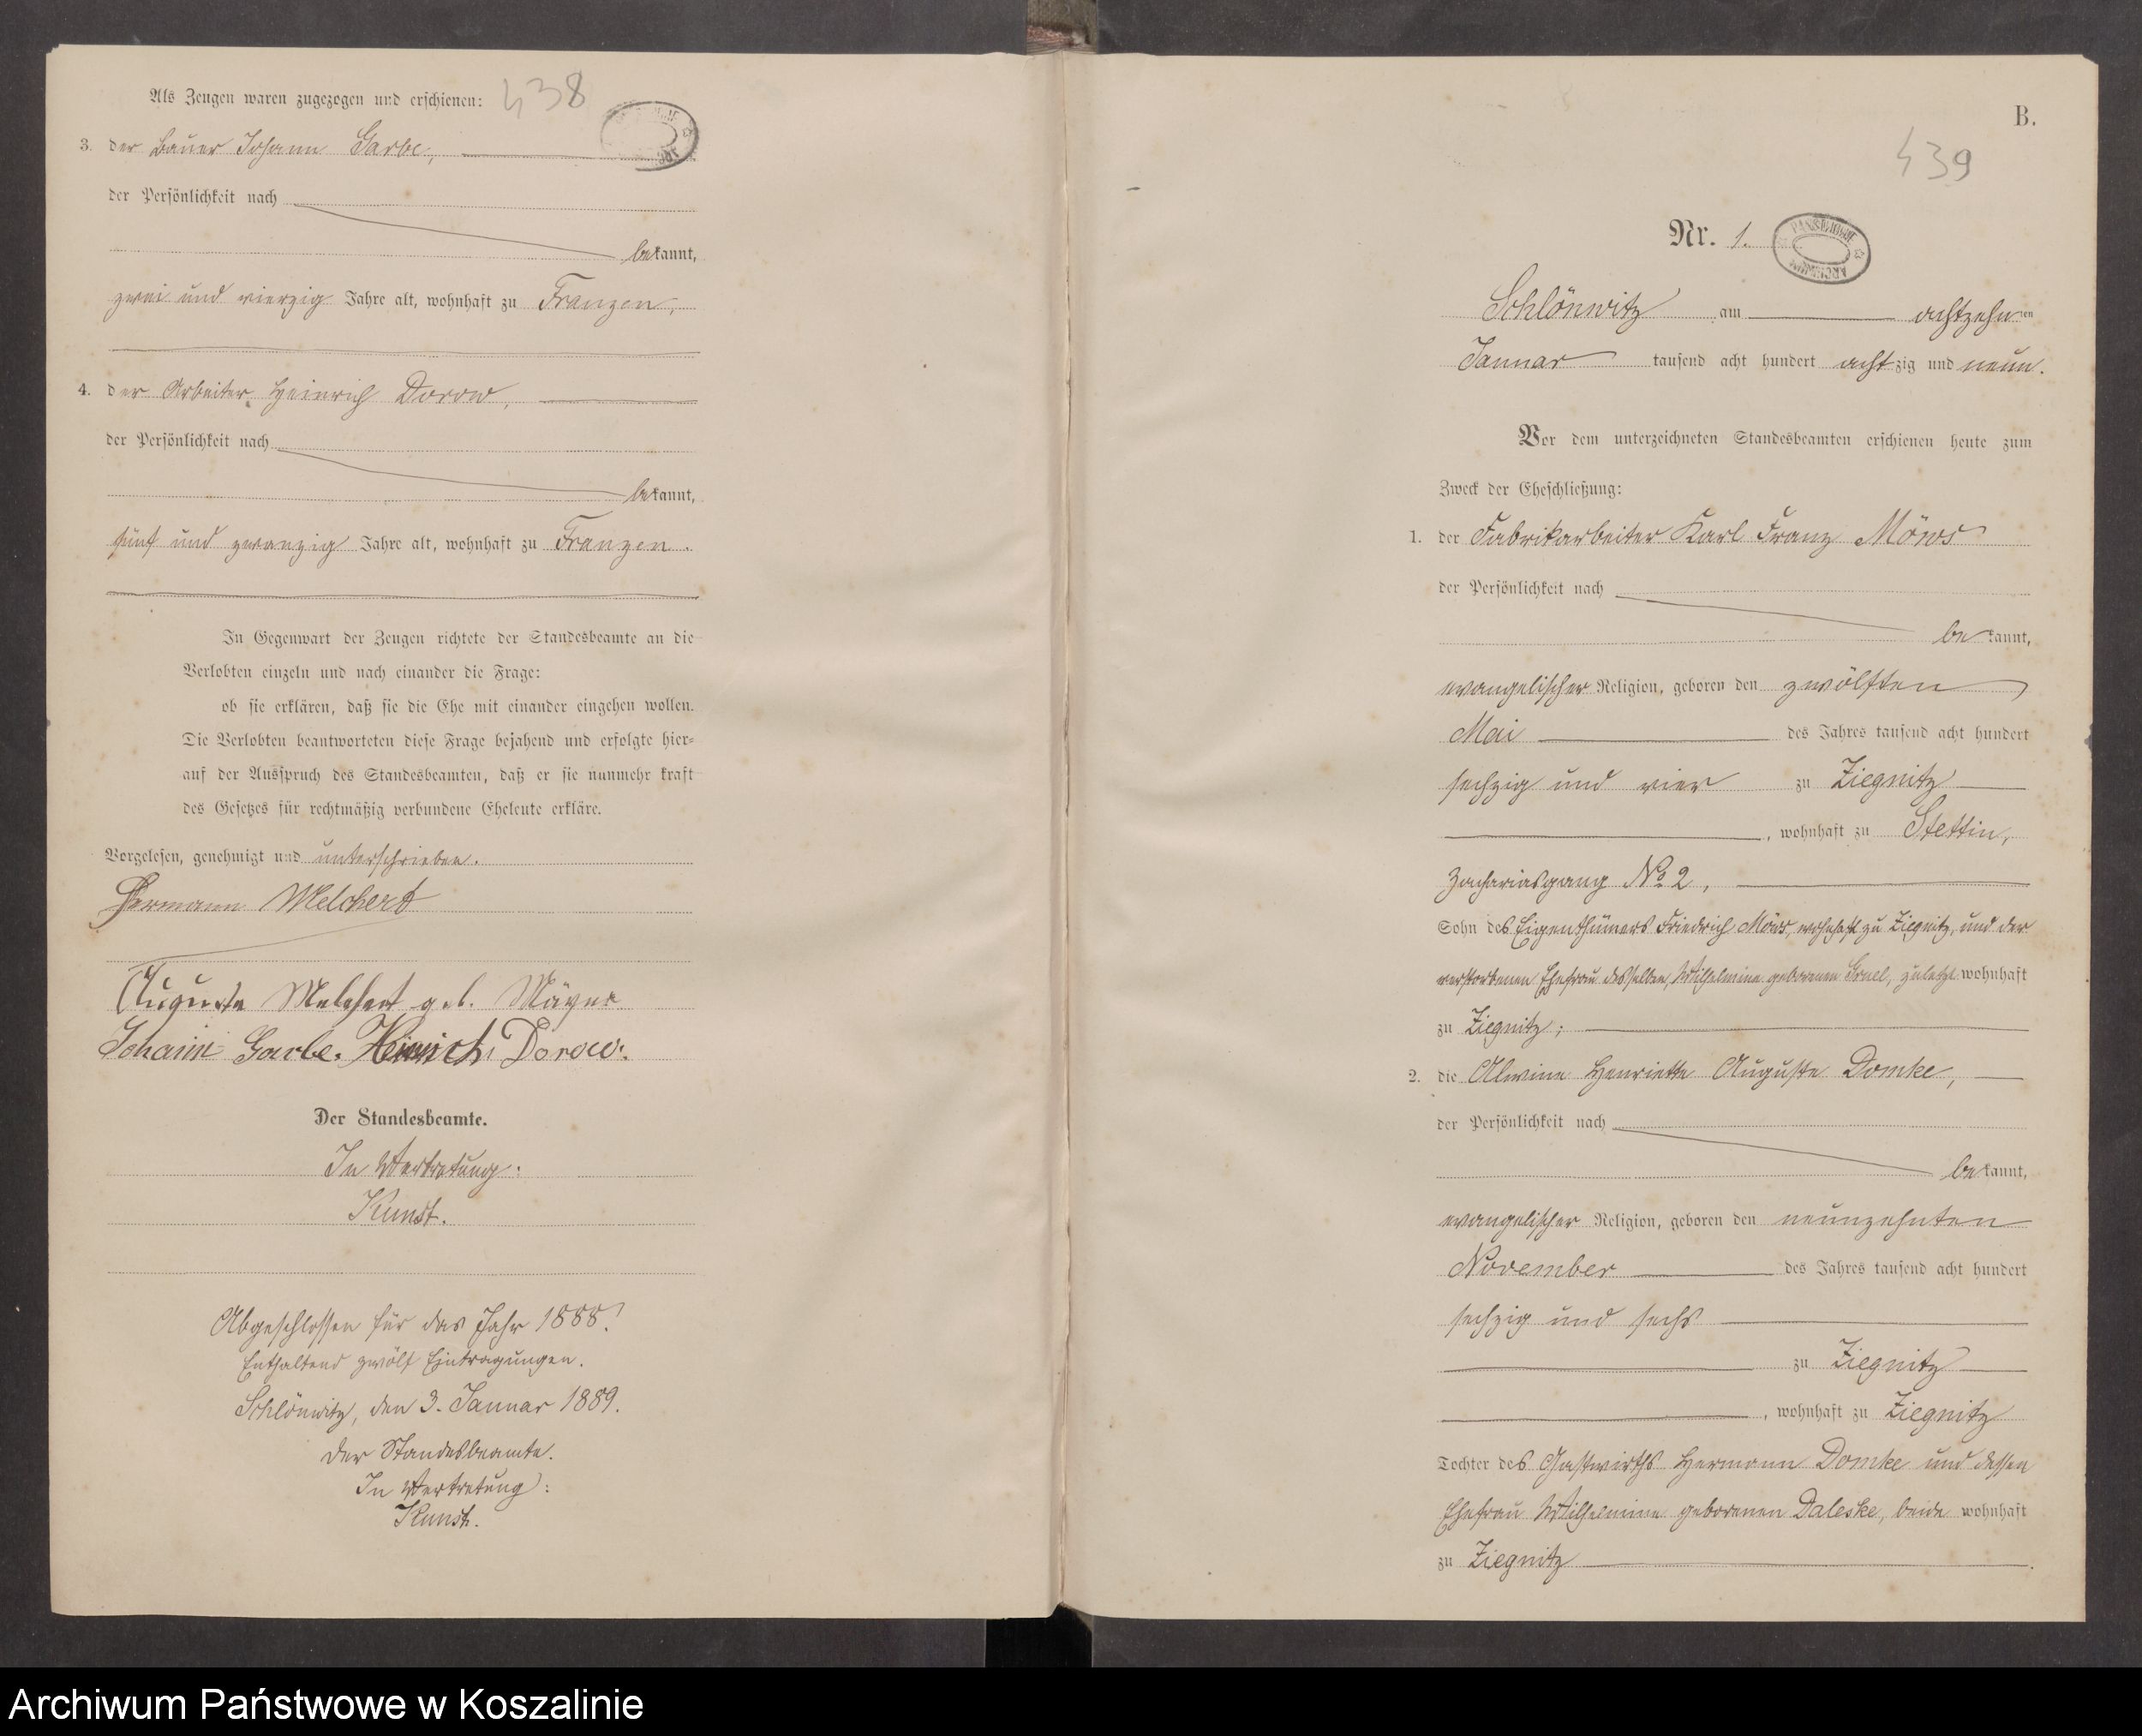 438
Als Zeugen waren zugezogen und erschienen:
3. der Bauer Johann Garbe,
der Persönlichkeit nach
bekannt,
zwei und vierzig Jahre alt, wohnhaft zu Franzen,
4. der Arbeiter Heinrich Dorow,
der Persönlichkeit nach
bekannt,
fünf und zwanzig Jahre alt, wohnhaft zu Franzen.
In Gegenwart der Zeugen richtete der Standesbeamte an die
Verlobten einzeln und nach einander die Frage:
ob sie erklären, daß sie die Ehe mit einander eingehen wollen.
Die Verlobten beantworteten diese Frage bejahend und erfolgte hier-
auf der Ausspruch des Standesbeamten, daß er sie nunmehr kraft
des Gesetzes für rechtmäßig verbundene Eheleute erkläre.
Vorgelesen, genehmigt und unterschrieben.
Hermann Melchert
Auguste Melchert geb.
Johann Garbe. Heinrich Dorow.
Der Standesbeamte.
In Vertretung:
Kunst.
Abgeschlossen für das Jahr 1888.
Enthaltend zwölf Eintragungen.
Schlönwitz, den 3. Januar 1889.
Der Standesbeamte.
In Vertretung:
Kunst.
B.
439
Nr. 1.
Schlönwitz am achtzehnten
Januar tausend acht hundert achtzig und neun.
Vor dem unterzeichneten Standesbeamten erschienen heute zum
Zweck der Eheschließung:
1. der Fabrikarbeiter Karl Franz Möws
der Persönlichkeit nach
bekannt,
evangelischer Religion, geboren den zwölften
Mai des Jahres tausend acht hundert
sechzig und vier zu Ziegnitz
, wohnhaft zu Stettin,
Zachariasgang No 2,
Sohn des Eigenthümers Friedrich Möws, wohnhaft zu Ziegnitz, und der
verstorbenen Ehefrau desselben, Wilhelmine geborenen zuletzt wohnhaft
zu Ziegnitz;
2. die Alwine Henriette Auguste Domke,
der Persönlichkeit nach
bekannt,
evangelischer Religion, geboren den neunzehnten
November des Jahres tausend acht hundert
sechzig und sechs
zu Ziegnitz
, wohnhaft zu Ziegnitz
Tochter des Gastwirths Hermann Domke und dessen
Ehefrau Wilhelmine geborenen Daleske, beide wohnhaft
zu Ziegnitz
Archiwum Państwowe w Koszalinie